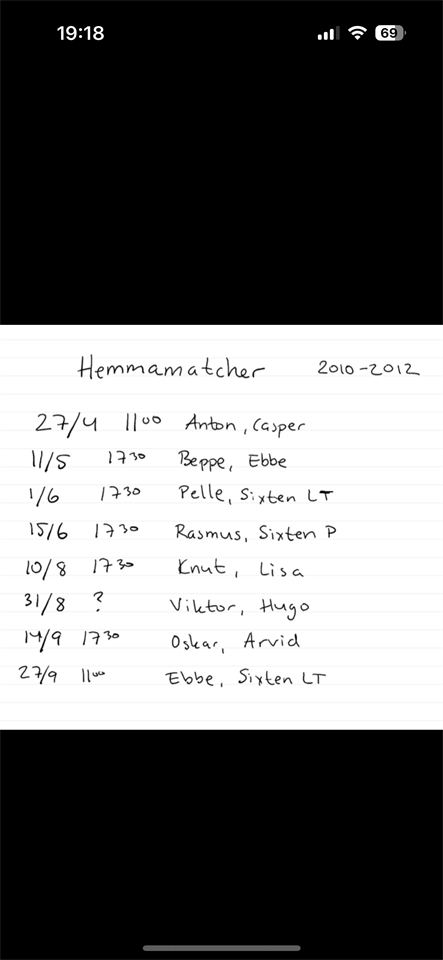 19:18 69
Hemmamatcher 2010-2012
27/4 11⁰⁰ Anton, Casper
11/5 17³⁰ Beppe, Ebbe
1/6 17³⁰ Pelle, Sixten LT
15/6 17³⁰ Rasmus, Sixten P
10/8 17³⁰ Knut, Lisa
31/8 ? Viktor, Hugo
14/9 17³⁰ Oskar, Arvid
27/9 11⁰⁰ Ebbe, Sixten LT